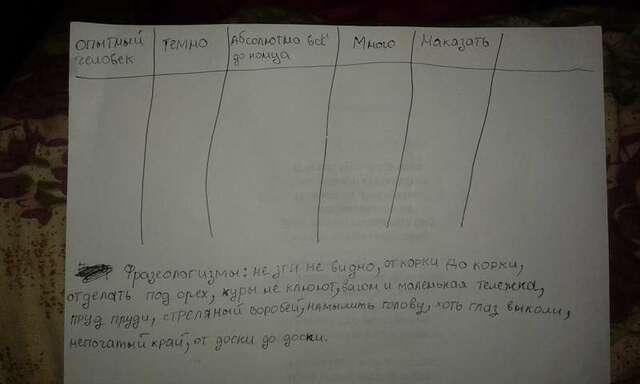 опытный человек
темно
Абсолютно всё до конца
Много
Наказать
Фразеологизмы: не зги не видно, от корки до корки,
отделать под орех, куры не клюют, вагон и маленькая тележка,
пруд пруди, стреляный воробей, намылить голову, хоть глаз выколи,
непочатый край, от доски до доски.